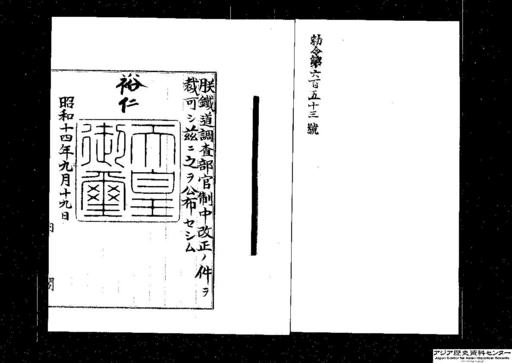 勅令第六百五十三號
朕鐵道調査部官制中改正ノ件ヲ
裁可シ茲ニ之ヲ公布セシム
裕仁
天皇
御璽
昭和十四年九月十九日
アジア歴史資料センター
Japan Center for Asian Historical Records